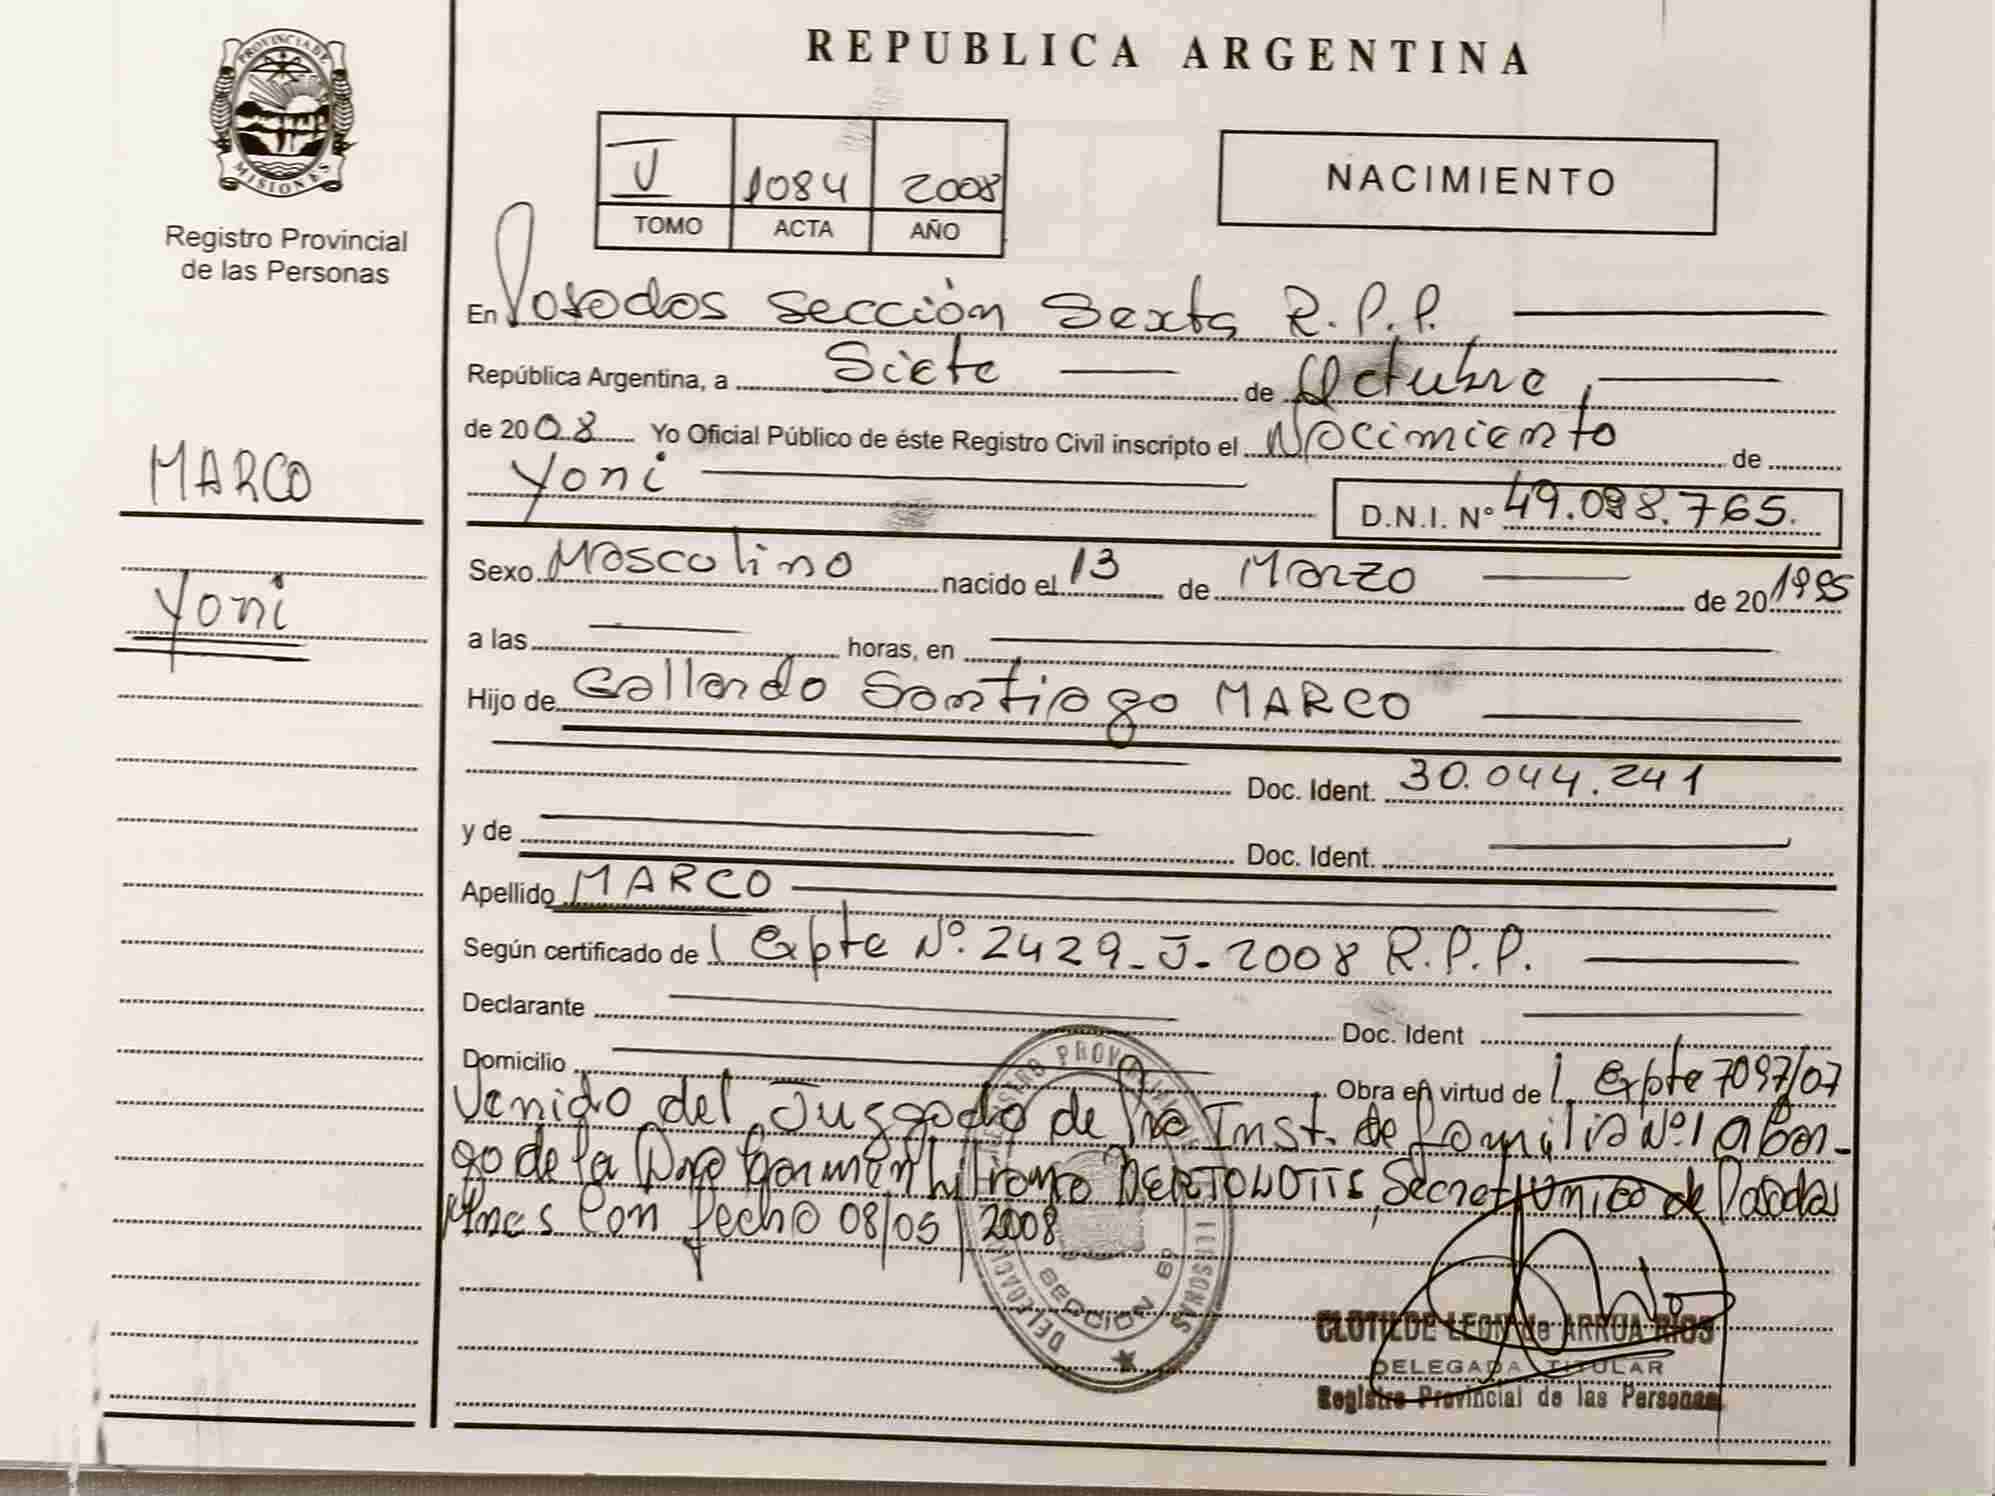 PROVINCIA DE
MISIONES
Registro Provincial
de las Personas
REPUBLICA ARGENTINA
V 1084 2008
TOMO ACTA AÑO
NACIMIENTO
En Posadas Sección Sexta R.P.P.
República Argentina, a Siete de Octubre
de 2008 Yo Oficial Público de éste Registro Civil inscripto el Nacimiento de
Yoni D.N.I. Nº 49.098.765.
MARCO
Yoni
Sexo Masculino nacido el 13 de Marzo de 20 1995
a las horas, en
Hijo de Gallardo Santiago MARCO
Doc. Ident. 30.044.241
y de Doc. Ident.
Apellido MARCO
Según certificado de Expte Nº. 2429-J-2008 R.P.P.
Declarante Doc. Ident
Domicilio Obra en virtud de Expte 7097/07
Venido del Juzgado de Inst. de Familia Nº1 a Car-
go de la Dra Carmen BERTOLOTTI, Secret. Unica de Posadas
Mnes Con fecha 08/05/2008
REGISTRO PROVINCIAL PERSONAS
DELEGACION SECCION 6º
CLOTILDE LEON de ARRUA RIOS
DELEGADA TITULAR
Registro Provincial de las Personas